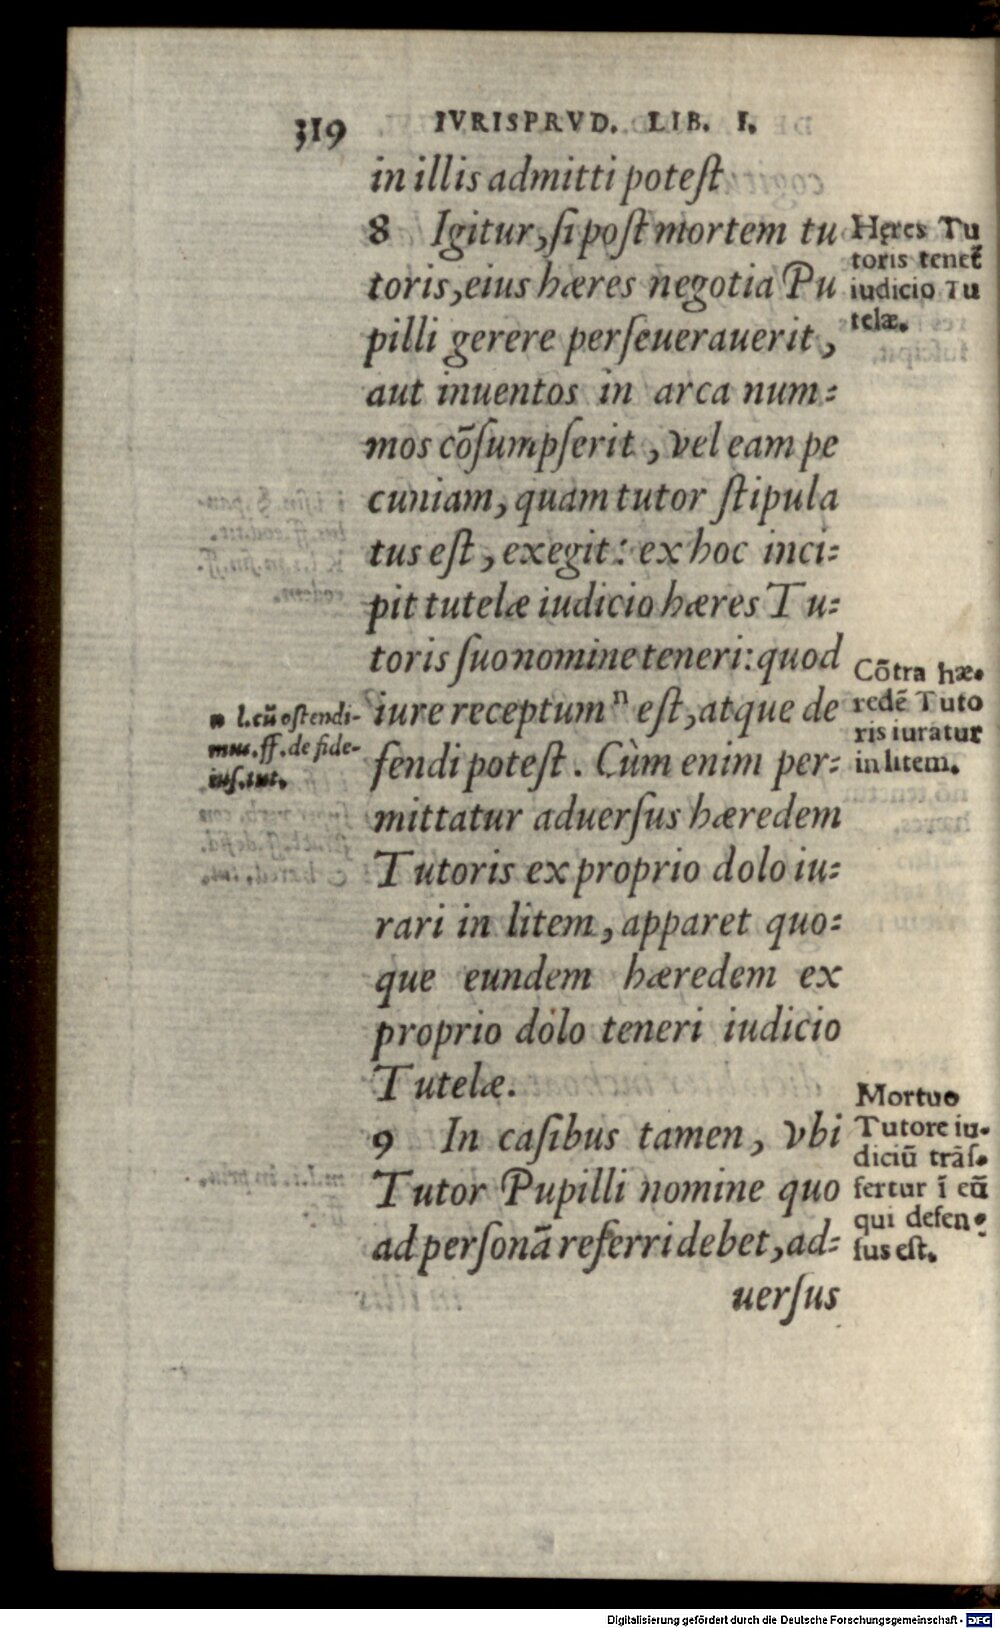 319 IVRISPRVD. LIB. I.
in illis admitti poteſt
8 Igitur, ſi poſt mortem tu
toris, eius hæres negotia Pu
pilli gerere perſeuerauerit,
aut inuentos in arca num-
mos cõſumpſerit, vel eam pe
cuniam, quam tutor ſtipula
tus eſt, exegit: ex hoc inci-
pit tutelæ iudicio hæres Tu-
toris ſuo nomine teneri: quod
iure receptum ⁿ eſt, atque de
fendi poteſt. Cùm enim per-
mittatur aduerſus hæredem
Tutoris ex proprio dolo iu-
rari in litem, apparet quo-
que eundem hæredem ex
proprio dolo teneri iudicio
Tutelæ.
9 In caſibus tamen, vbi
Tutor Pupilli nomine quo
ad perſonã referri debet, ad-
uerſus
Heres Tu
toris tenet̃
iudicio Tu
telæ.
Cõtra hæ-
redẽ Tuto
ris iuratur
in litem.
Mortuo
Tutore iu-
diciũ trãſ-
fertur ĩ eũ
qui defen-
ſus eſt.
n l. cũ oſtendi-
mus. ff. de fide-
iuſ. tut.
Digitalisierung gefördert durch die Deutsche Forschungsgemeinschaft - DFG